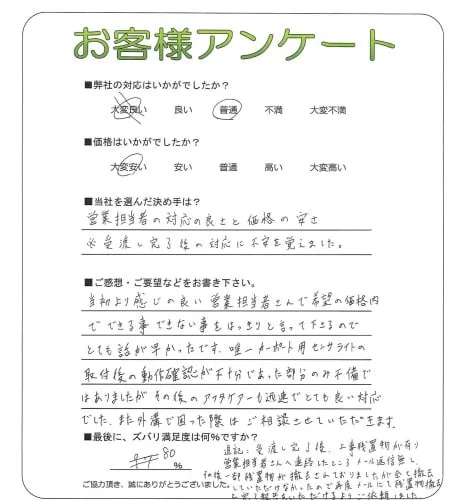 お客様アンケート
■弊社の対応はいかがでしたか？
大変良い 良い 普通 不満 大変不満
■価格はいかがでしたか？
大変安い 安い 普通 高い 大変高い
■当社を選んだ決め手は？
営業担当者の対応の良さと価格の安さ
※受渡し完了後の対応に不安を覚えました。
■ご感想・ご要望などをお書き下さい。
当初より感じの良い営業担当者さんで希望の価格内
でできる事できない事をはっきりと言って下さるので
とても話が早かったです。唯一カーポート用センサライトの
取付後の動作確認が不十分であった部分のみ不備で
はありましたがその後のアフタケアーも迅速でとても良い対応
でした。また外溝で困った際はご相談させていただきます。
■最後に、ズバリ満足度は何%ですか？
80
%
追記：受渡し完了後、工事残置物が有り
営業担当者さんへ連絡したところメール返信無し、
和後一部残置物が撤去されておりましたが全て撤去
していただけなかったので再度メールにて残置物撤去
ご協力頂き、誠にありがとうございました。